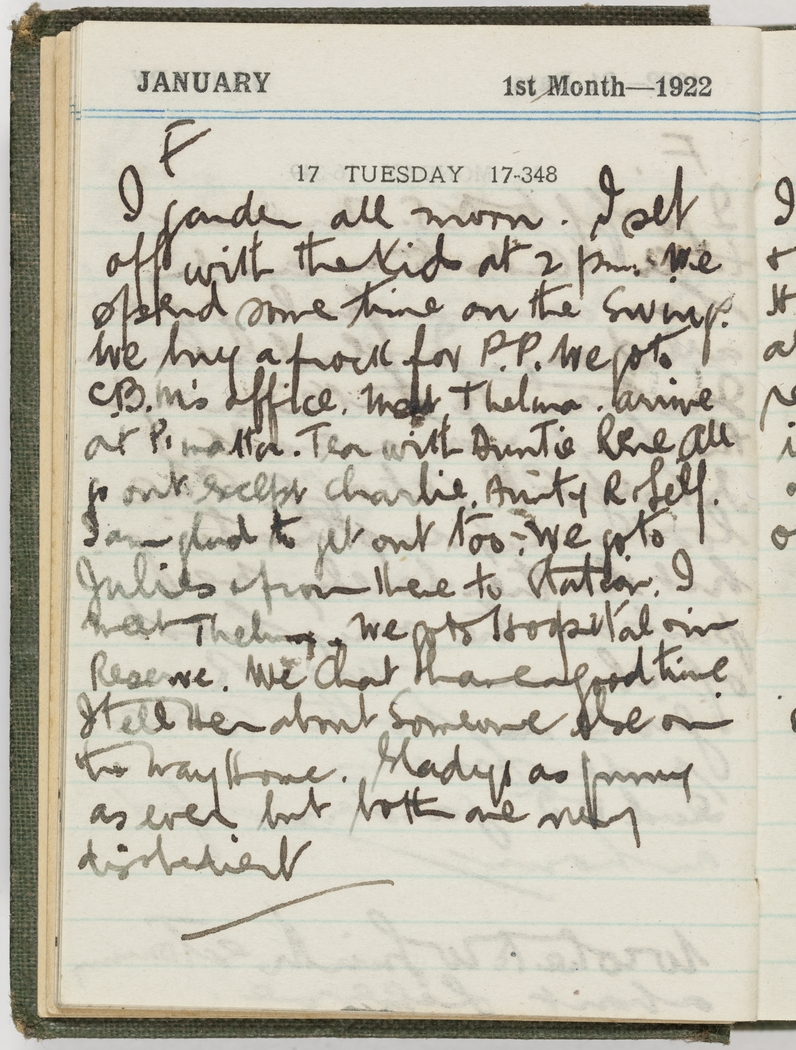 JANUARY 1st Month—1922
F
17 TUESDAY 17-348
I garden all morn. I set
off with the Kids at 2 pm. We
spend some time on the Swings.
We buy a frock for P.P. We go to
C.B.M's office. Meet Thelma. arrive
at P.matta. Tea with Auntie Rene, All
go out except Charlie, Aunty R & Self.
I am glad to get out too. We go to
Julies & from there to Station. I
meet Thelma. We go to Hospital via
Reserve. We Chat & have a good time
I tell Her about Someone else on
the way Home. Gladys as funny
as ever but both are very
disobedient